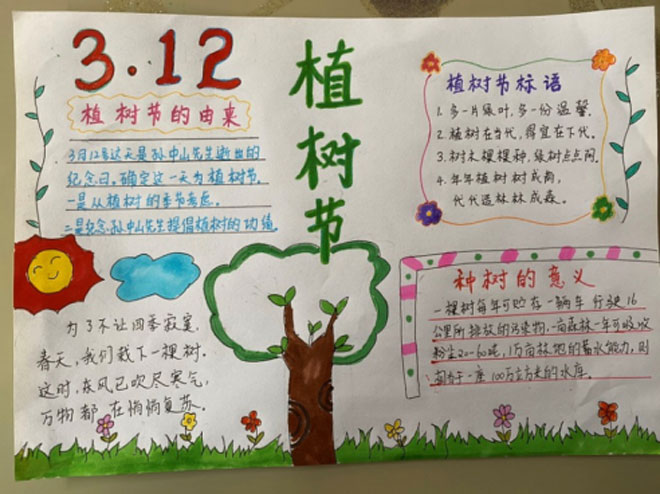 3.12
植树节的由来
3月12号这天是孙中山先生逝世的
纪念日,确定这一天为植树节,
一是从植树的季节考虑,
二是纪念孙中山先生提倡植树的功绩
植树节
植树节标语
1. 多一片绿叶,多一份温馨。
2. 植树在当代,得宜在下代。
3. 树木棵棵种,绿树点点间。
4. 年年植树树成荫,
代代造林林成森。
种树的意义
一棵树每年可贮存一辆车行驶16
公里所排放的污染物,一亩森林一年可吸收
粉尘20-60吨,1万亩林地的蓄水能力,则
相当于一座100万立方米的水库。
为了不让四季寂寞,
春天,我们栽下一棵树。
这时,东风已吹尽寒气,
万物都在悄悄复苏。